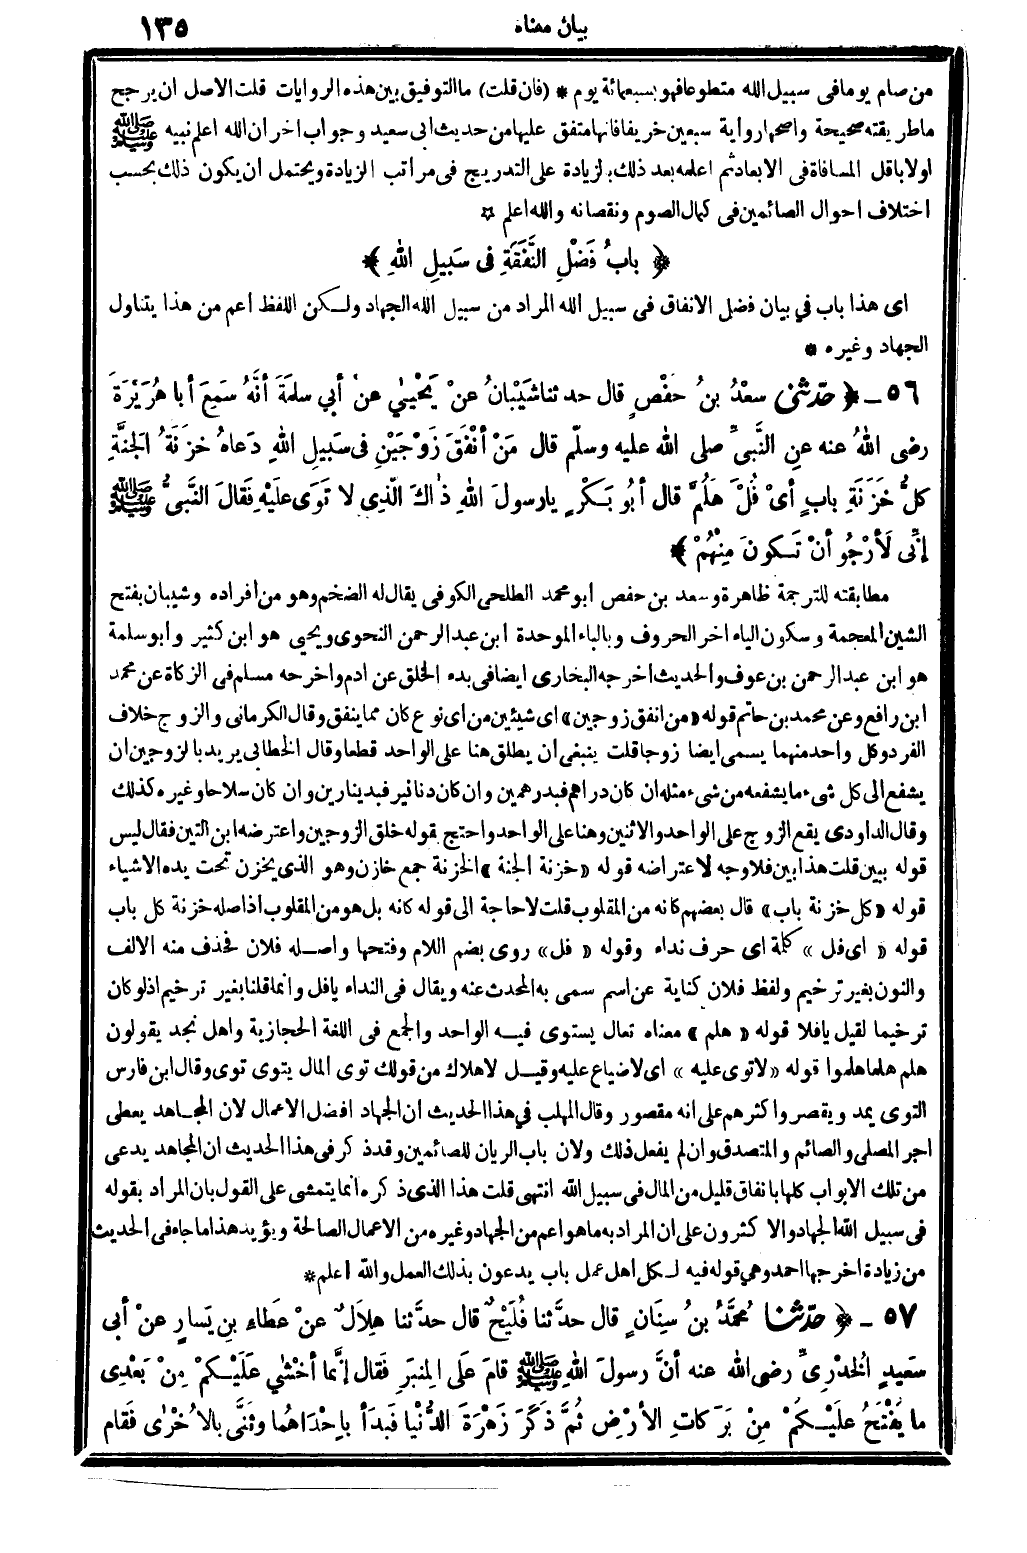 بيان معناه ١٣٥
من صام يوما في سبيل الله متطوعا فهو بسبعمائة يوم * (فان قلت) ما التوفيق بين هذه الروايات قلت الاصل ان يرجح
ما طريقته صحيحة واصحها رواية سبعين خريفا فانها متفق عليها من حديث ابى سعيد وجواب اخر ان الله اعلم نبيه ﷺ
اولا باقل المسافاة فى الابعاد ثم اعلمه بعد ذلك بالزيادة على التدريج فى مراتب الزيادة ويحتمل ان يكون ذلك بحسب
اختلاف احوال الصائمين فى كمال الصوم ونقصانه والله اعلم ☆
﴿ بابُ فَضْلِ النَّفَقَةِ فى سَبِيلِ اللهِ ﴾
اى هذا باب في بيان فضل الانفاق فى سبيل الله المراد من سبيل الله الجهاد ولكن اللفظ اعم من هذا يتناول
الجهاد وغيره *
٥٦ - ﴿ حدّثنى سعْدُ بنُ حَفْصٍ قال حدثنا شَيْبانُ عنْ يَحْييٰ عنْ أبي سلمَةَ أنَّهُ سَمِعَ أبا هُرَيْرَةَ
رضى اللهُ عنه عنِ النَّبىِّ صلى الله عليه وسلّم قال مَنْ أنْفَقَ زَوْجَيْنِ فى سَبِيلِ اللهِ دَعاهُ خزَنَةُ الجَنَّةِ
كلُّ خَزَنَةِ بابٍ أىْ فُلْ هَلُمَّ قال أبُو بَكْرٍ يارسولَ اللهِ ذٰاكَ الّذِي لا تَوَى علَيْهِ فَقالَ النَّبىُّ ﷺ
إنِّى لَأرْجُو أنْ تَكونَ مِنْهُمْ ﴾
مطابقته للترجمة ظاهرة وسعد بن حفص ابو محمد الطلحى الكوفى يقال له الضخم وهو من افراده وشيبان بفتح
الشين المعجمة وسكون الياء اخر الحروف وبالباء الموحدة ابن عبد الرحمن النحوى ويحيى هو ابن كثير وابو سلمة
هو ابن عبد الرحمن بن عوف والحديث اخرجه البخارى ايضا فى بدء الخلق عن ادم واخرجه مسلم فى الزكاة عن محمد
ابن رافع وعن محمد بن حاتم قوله «من انفق زوجين» اى شيئين من اى نوع كان مما ينفق وقال الكرمانى والزوج خلاف
الفرد وكل واحد منهما يسمى ايضا زوجا قلت ينبغى ان يطلق هنا على الواحد قطعا وقال الخطابى يريد بالزوجين ان
يشفع الى كل شىء ما يشفعه من شىء مثله ان كان دراهم فبدرهمين وان كان دنانير فبدينارين وان كان سلاحا وغيره كذلك
وقال الداودى يقع الزوج على الواحد والاثنين وهنا على الواحد واحتج بقوله خلق الزوجين واعترضه ابن التين فقال ليس
قوله ببين قلت هذا بين فلا وجه لاعتراضه قوله «خزنة الجنة» الخزنة جمع خازن وهو الذى يخزن تحت يده الاشياء
قوله «كل خزنة باب» قال بعضهم كانه من المقلوب قلت لا حاجة الى قوله كانه بل هو من المقلوب اذ اصله خزنة كل باب
قوله «اى فل» كلمة اى حرف نداء وقوله «فل» روى بضم اللام وفتحها واصله فلان فحذف منه الالف
والنون بغير ترخيم ولفظ فلان كناية عن اسم سمى به المحدث عنه ويقال فى النداء يافل وانما قلنا بغير ترخيم اذ لو كان
ترخيما لقيل يافلا قوله «هلم» معناه تعال يستوى فيه الواحد والجمع فى اللغة الحجازية واهل نجد يقولون
هلم هلما هلموا قوله «لا توى عليه» اى لا ضياع عليه وقيل لا هلاك من قولك توى المال يتوى توى وقال ابن فارس
التوى يمد ويقصر واكثرهم على انه مقصور وقال المهلب في هذا الحديث ان الجهاد افضل الاعمال لان المجاهد يعطى
اجر المصلى والصائم والمتصدق وان لم يفعل ذلك ولان باب الريان للصائمين وقد ذكر فى هذا الحديث ان المجاهد يدعى
من تلك الابواب كلها بانفاق قليل من المال فى سبيل الله انتهى قلت هذا الذى ذكره انما يتمشى على القول بان المراد بقوله
فى سبيل الله الجهاد والاكثرون على ان المراد به ما هو اعم من الجهاد وغيره من الاعمال الصالحة ويؤيد هذا ما جاء فى الحديث
من زيادة اخرجها احمد وهي قوله فيه لكل اهل عمل باب يدعون بذلك العمل والله اعلم *
٥٧ - ﴿ حدّثنا مُحمَّدُ بنُ سِنَانٍ قال حدَّثنا فُلَيْحٌ قال حدَّثنا هِلَالٌ عنْ عَطَاءِ بنِ يَسارٍ عنْ أبى
سَعِيدٍ الخدْرِىِّ رضى الله عنه أنَّ رسولَ اللهِ ﷺ قامَ علَى المِنبَرِ فَقال إنَّما أخْشٰي عَلَيْكمْ مِنْ بَعْدِى
ما يُفْتَحُ علَيْكمْ مِنْ بَرَكاتِ الأرْضِ ثُمَّ ذَكَرَ زَهْرَةَ الدُّنْيا فَبَدأ بإحْدَاهُما وثَنَّى بالأُخْرٰى فَقام